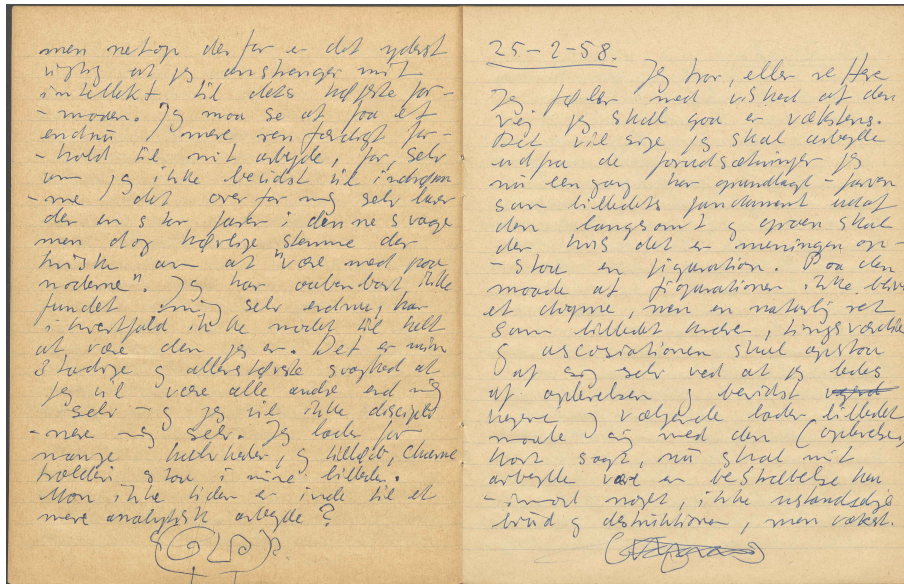 men netop derfor er det yderst
vigtig at jeg anstrenger mit
intellekt til dets højeste for-
-maaen. Jeg maa se at faa et
endnu mere renfærdigt for-
-hold til mit arbejde, for, selv
om jeg ikke bevidst vil indrøm
-me det overfor mig selv lurer
der en stor fare i denne svage
men dog hørlige stemme der
hviske om at "være med paa
noderne". Jeg har aabenbart ikke
fundet mig selv endnu, har
i hvertfald ikke modet til helt
at være den jeg er. Det er min
stadige og allerstørste svaghed at
jeg vil være alle andre end mig
selv - og jeg vil ikke discipli
-nere mig selv. Jeg lader for
mange halvheder, og tilløb,
staa i mine billeder.
Mon ikke tiden er inde til et
mere analytisk arbejde?
25-2-58.
Jeg tror, eller rettere
Jeg føler med vished at den
vej jeg skal gaa er vækstens.
Det vil sige jeg skal arbejde
udfra de forudsætninger jeg
nu een gang har grundlagt - farven
som billedets fundament udaf
den langsomt og groen skal
der hvis det er meningen op-
-staa en figuration. Paa den
maade at figurationen ikke blive
et dogme, men en naturlig ret
som billedet ændrer, tingsværdien
og ascosiationen skal opstaa
af sig selv ved at jeg ledes
af oplevelsen og bevidst
og vælgende lader billedet
maale sig med den (oplevelsen,
kort sagt, nu skal mit
arbejde være en bestræbelse hen
-imod noget, ikke
brud og destruktionen, men vækst.